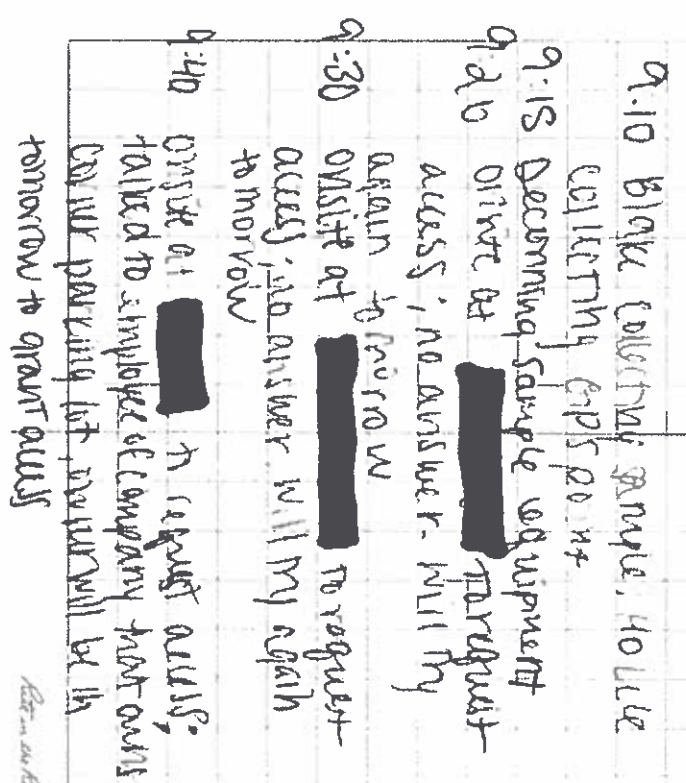 9:10 Blake collecting sample,
collecting GPS point
9:15 Deconning sample equipment
9:20 onsite at to request
access; no answer. Will try
again tomorrow
9:30 onsite at to request
access; no answer will try again
tomorrow
9:40 onsite at to request access;
talked to employee of company that owns
parking lot, owner will be in
tomorrow to grant access